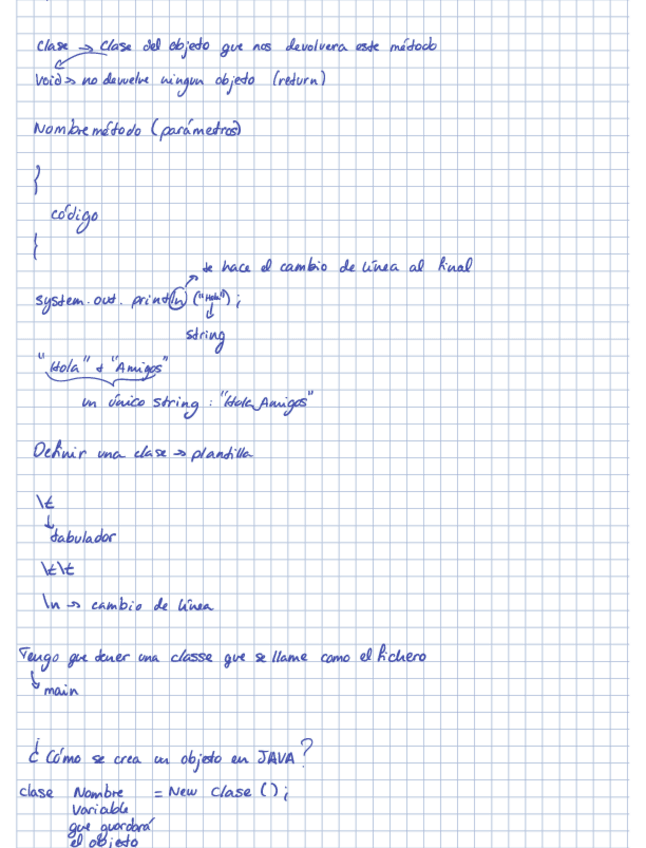 clase → clase del objeto que nos devolvera este método
Void → no devuelve ningun objeto (return)
Nombre método (parámetros)
}
código
{
se hace el cambio de línea al final
system.out.println ("Hola");
string
"Hola" + "Amigos"
un único string : "Hola Amigos"
Definir una clase → plantilla
\t
tabulador
\t\t
\n → cambio de línea
Tengo que tener una classe que se llame como el fichero
main
¿Cómo se crea un objeto en JAVA?
clase Nombre = New Clase ();
Variable
que guardará
el objeto